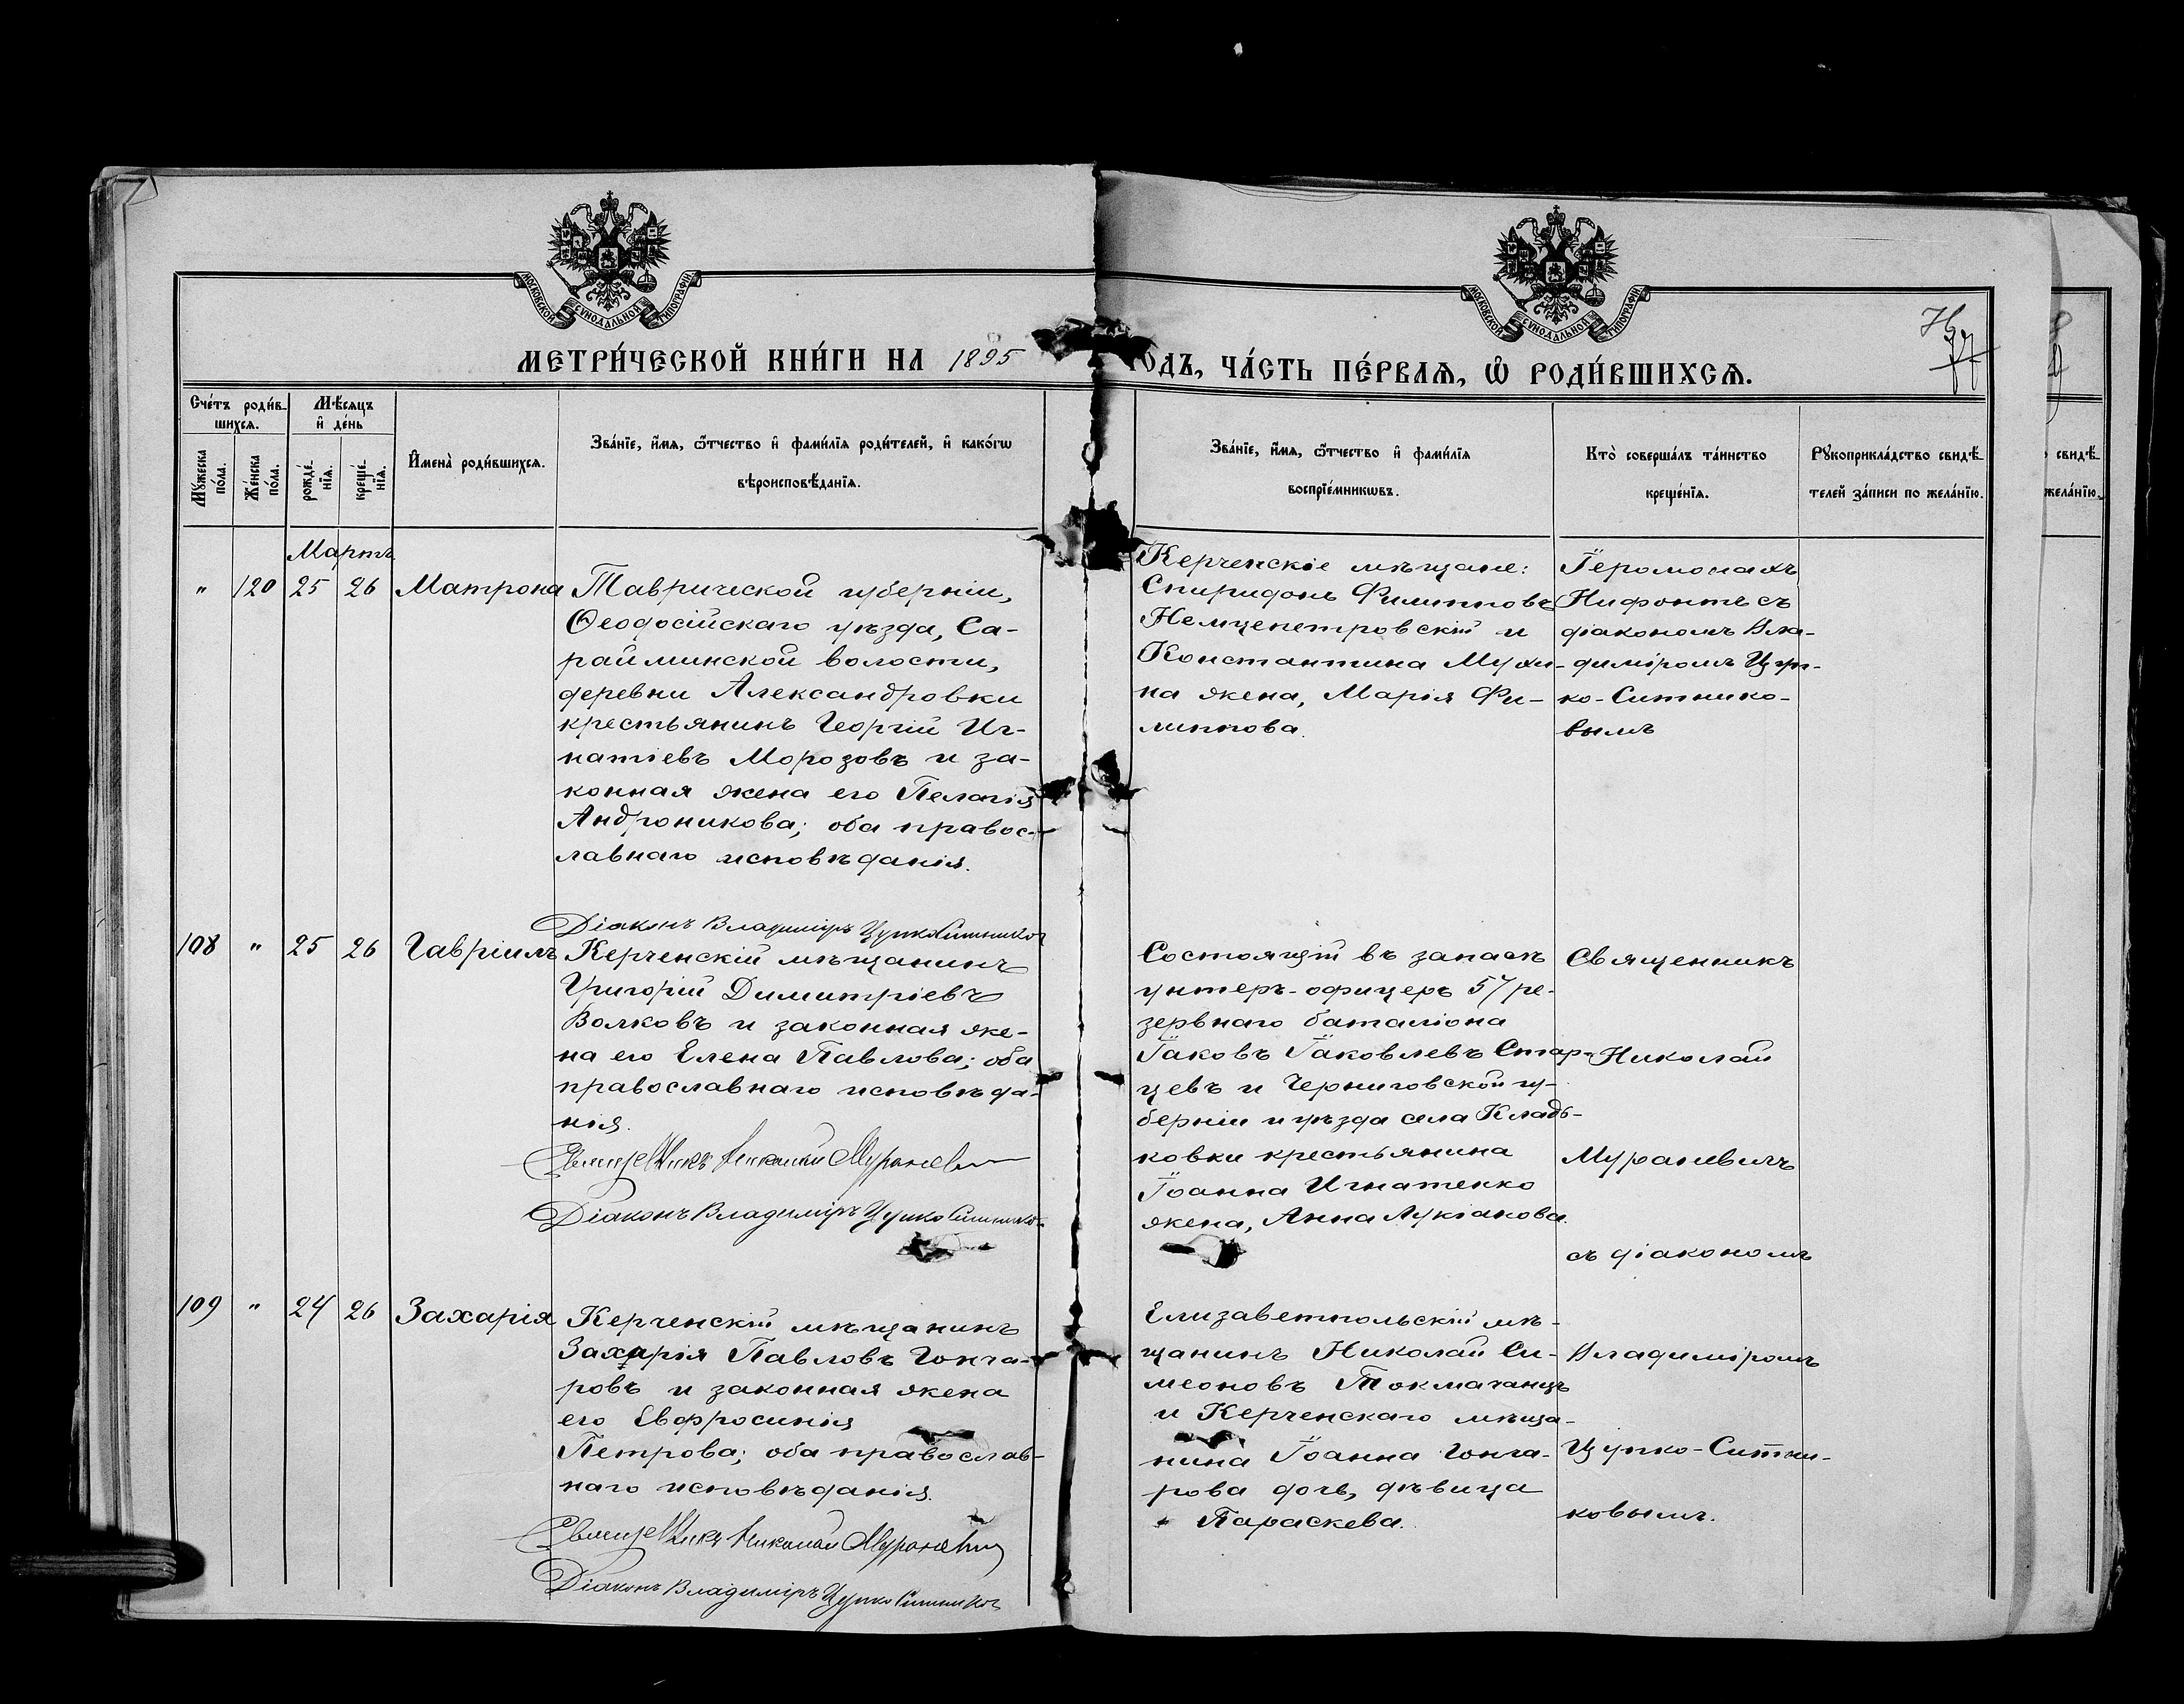 МОСКОВСКОЙ СУНОДАЛЬНОЙ ТИПОГРАФІИ
МОСКОВСКОЙ СУНОДАЛЬНОЙ ТИПОГРАФІИ
МЕТРИ́ЧЕСКОЙ КНИ́ГИ НА 1895
ОДЪ, ЧА́СТЬ ПЕ́РВАѦ, Ѡ҆ РОДИ́ВШИХСѦ.
77
Сче́тъ роди́в-
шихсѧ.
Мѣ́сѧцъ
и҆ де́нь
Мꙋ́жеска
по́ла.
Же́нска
по́ла.
рожде́-
нїѧ.
креще́-
нїѧ.
И҆мена̀ роди́вшихсѧ.
Зва́нїе, и҆́мѧ, ѻ҆́тчество и҆ фами́лїѧ роди́телей, и҆ како́гѡ
вѣроисповѣ́данїѧ.
Зва́нїе, и҆́мѧ, ѻ҆́тчество и҆ фами́лїѧ
воспрїе́мникѡвъ.
Кто̀ соверша́лъ та́инство
креще́нїѧ.
Рꙋкоприкла́дство свидѣ́-
телей за́писи по жела́нїю.
свидѣ́-
жела́нїю.
Мартъ
" 120 25 26 Матрона
Таврической губерніи,
Ѳеодосійскаго уѣзда, Са-
райминской волости,
деревни Александровки
крестьянинъ Георгій Иг-
натіевъ Морозовъ и за-
конная жена его Пелагія
Андроникова; оба правос-
лавнаго исповѣданія.
Діаконъ Владиміръ Цурко Ситников
Керченскіе мѣщане:
Спиридонъ Филипповъ
Немцепетровскій и
Константина Мухи-
на жена, Марія Фи-
липпова.
Іеромонахъ
Нифонтъ съ
діакономъ Вла-
диміромъ Цур-
ко-Ситнико-
вымъ
108 " 25 26 Гавріилъ
Керченскій мѣщанинъ
Григорій Димитріевъ
Волковъ и законная же-
на его Елена Павлова; оба
православнаго исповѣда-
нія.
Священникъ Николай Мураневич
Діаконъ Владиміръ Цурко Ситников
Состоящій въ запасѣ
унтеръ-офицеръ 57 ре-
зервнаго баталіона
Іаковъ Іаковлевъ Стар-
цевъ и Черниговской гу-
берніи и уѣзда села Кладь-
ковки крестьянина
Іоанна Игнатенко
жена, Анна Лукіанова.
Священникъ
Николай
Мураневичъ
съ діакономъ
Владиміромъ
Цурко-Ситни-
ковымъ.
109 " 24 26 Захарія
Керченскій мѣщанинъ
Захарія Павловъ Гонча-
ровъ и законная жена
его Евфросинія
Петрова; оба православ-
наго исповѣданія.
Священникъ Николай Мураневич
Діаконъ Владиміръ Цурко Ситников
Елизаветпольскій мѣ-
щанинъ Николай Си-
меоновъ Токмачанцъ
и Керченскаго мѣща-
нина Іоанна Гонча-
рова дочь, дѣвица
Параскева.